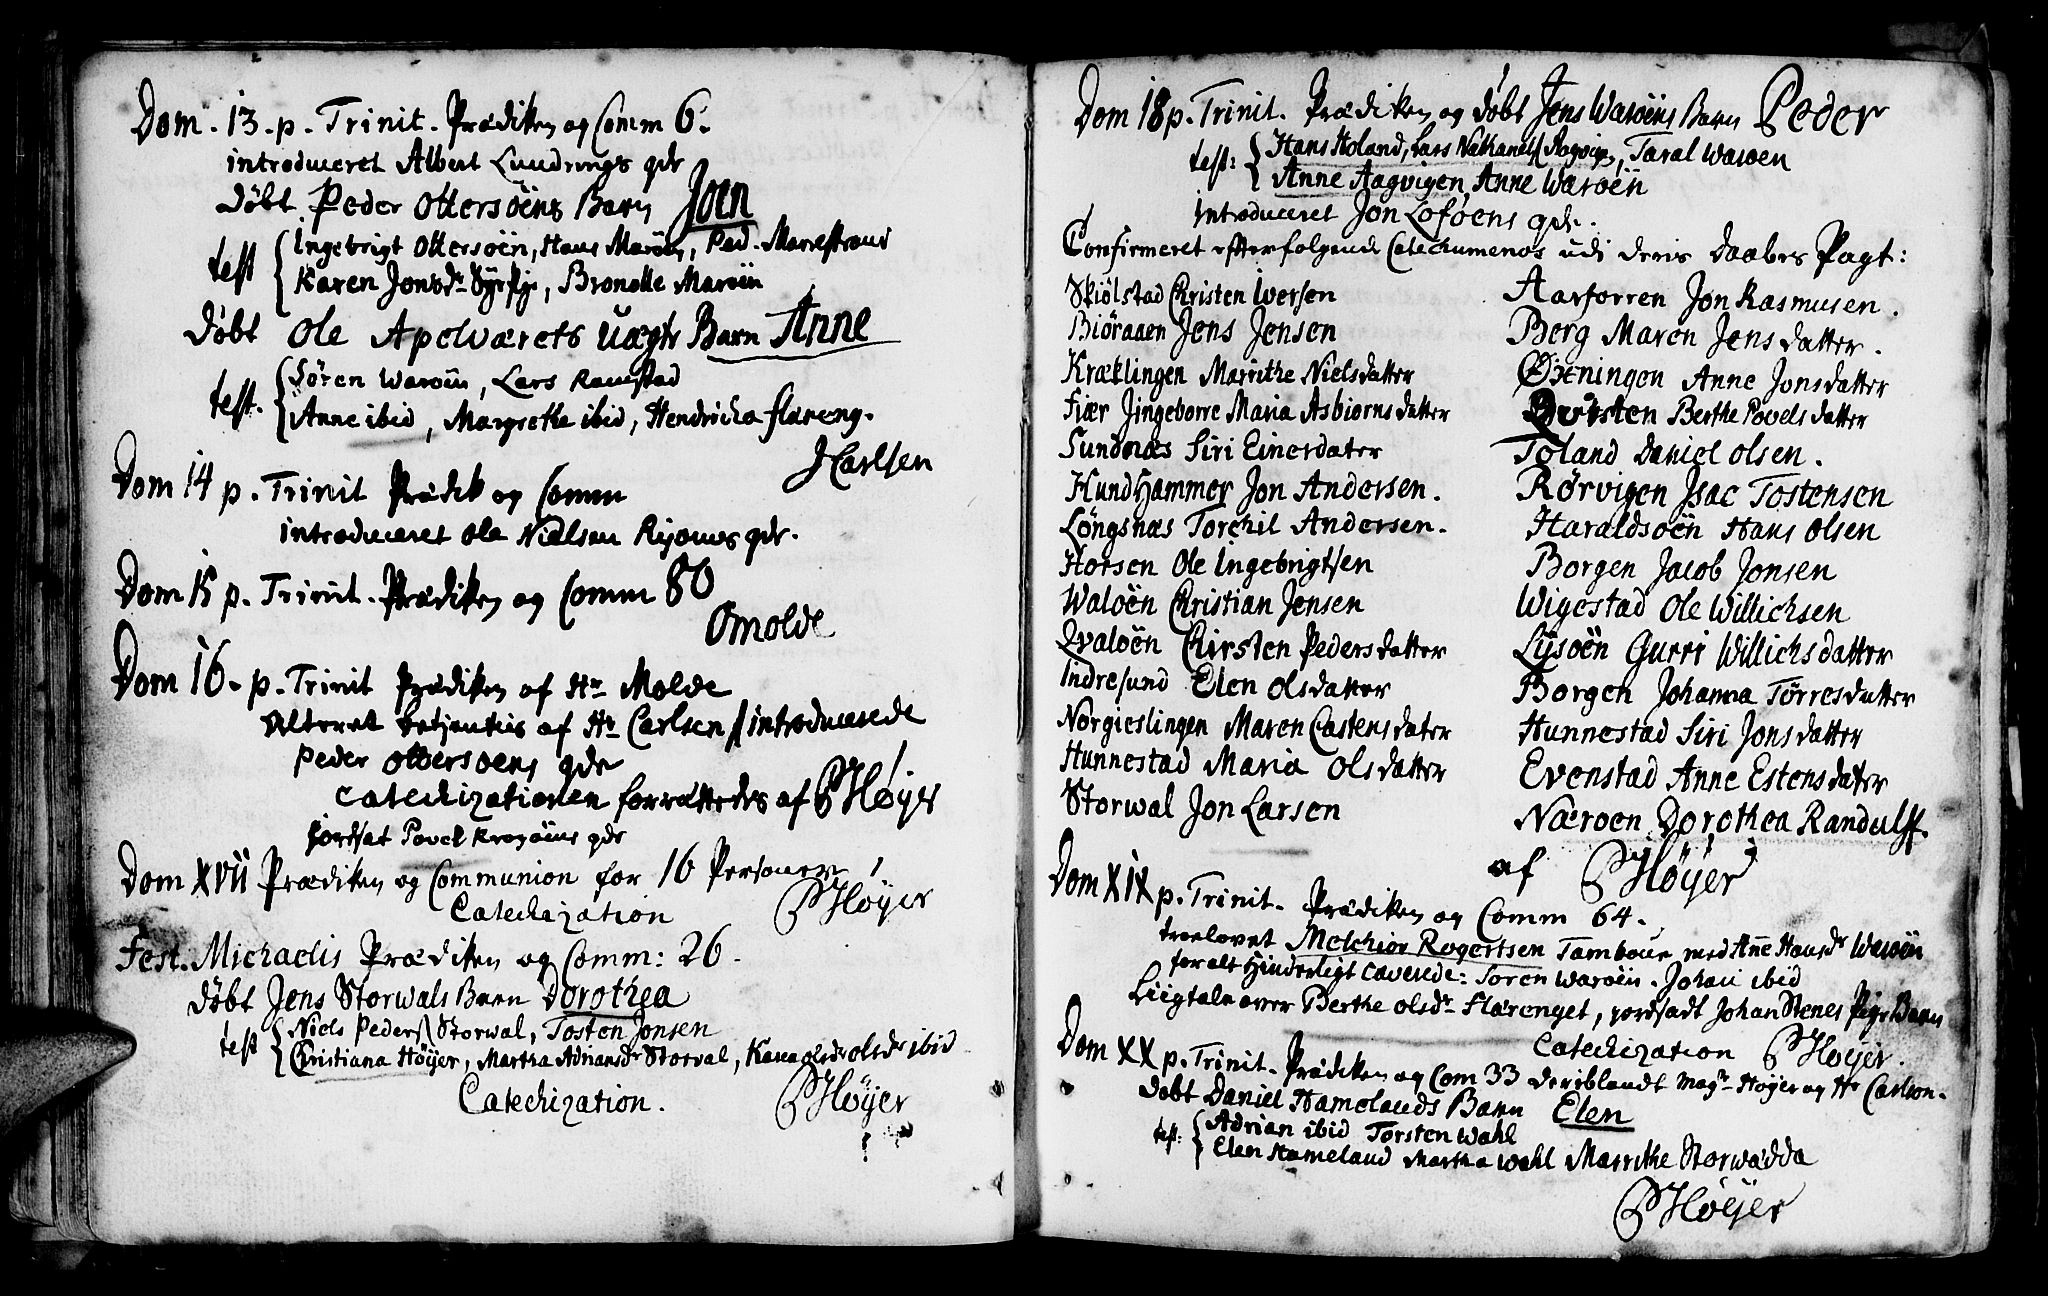 Dom. 13. p. Trinit. Prædiken og Comm 6.
introduceret Albert Lundrings qdr
Døbt Peder Ottersøens Barn Joen
test Ingebrigt Ottersøen, Hans Marøn, Ped. Marrestrand
Karen Jonsdr, Bronelle Marøn
Døbt Ole Apelværets Uægte Barn Anne
test. Søren Warøen, Lars Ramstad
Anne ibid, Margrethe ibid, Hendricha Flareng.
J Carlsen
Dom 14 p. Trinit Prædik og Comm
introduceret Ole Nielsen qdr.
Dom 15 p. Trinit. Prædiken og Comm 80
OMolde
Dom 16. p. Trinit Prædiken af Hr Molde
Alteret betjentes af Hr Carlsen // introducerede
Peder Ottersoens qdr
Catechizationen forrettedes af PHøyer
jordsat Povel qdr
Dom XVII Prædiken og Communion for 16 Personer
Catechization PHøyer
Fest. Michaelis Prædiken og Comm: 26.
Døbt Jens Storwals Barn Dorothea
test Niels Peders. Storwal, Tosten Jonsen
Christiana Høyer, Martha Adriansdr Storval, olsdr ibid
Catechization. PHøyer
Dom 18 p. Trinit. Prædiken og døbt Jens Warøens Barn Peder
test: Hans Holand, Lars Nathanels. Aagvig, Taral Warøen
Anne Aagvigen, Anne Warøen
Introduceret Jon Loføens qdr.
Confirmeret efterfølgende Catechumenos udi deris Daabes Pagt:
Skiølstad Christen Iversen
Biøraaen Jens Jensen
Kræklingen Marrithe Nielsdatter
Fiær Jingeborre Maria Asbiørnsdatter
Sundnæs Siri Einersdater
Hundhammer Jon Andersen.
Løngsnæs Torchil Andersen.
Horsen Ole Ingebrigtsen
Waløen Christian Jensen
Qvaløen Chirsten Pedersdatter
Indresund Elen Olsdatter
Norgieslingen Maren Castensdater
Hunnestad Maria Olsdatter
Storwal Jon Larsen
Aarforren Jon Rasmusen.
Berg Maren Jensdatter.
Øxningen Anne Jonsdatter
Berthe Povelsdatter
Toland Daniel Olsen.
Rørvigen Isac Tostensen
Haraldsøen Hans Olsen
Borgen Jacob Jonsen
Wigestad Ole Willichsen
Lysøen Gurri Willichsdatter
Borgen Johanna Tørresdatter
Hunnestad Siri Jonsdatter
Evenstad Anne Estensdater
Næroen Dorothea Randulff.
af PHøyer
Dom XIX p. Trinit. Prædiken og Comm 64.
troelovet Melchior Rogertsen Tambour med Anne Hansdr Warøen
for alt Hinderligt Caverede: Søren Warøen. Johan ibid
Liigtale over Berthe Olsdr Flærenget, jordsadt Johan Stenes Pige Barn
Catechization PHøyer.
Dom XX p. Trinit. Prædiken og Com 33 deriblandt Magr Høyer og Hr Carlsen.
Døbt Daniel Hamelands Barn Elen
test: Adrian ibid Torsten Wahl
Elen Hameland Martha Wahl Marrithe Storwadda
PHøyer